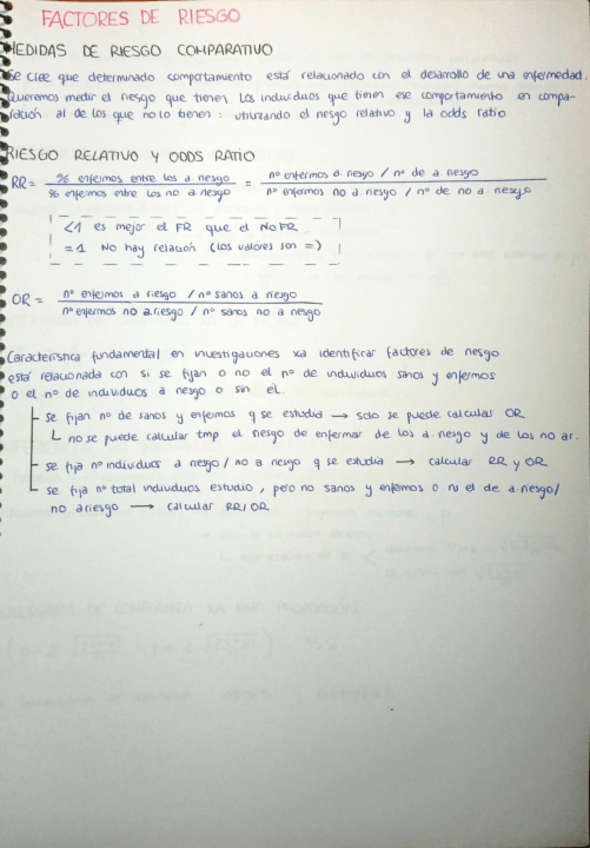 FACTORES DE RIESGO
MEDIDAS DE RIESGO COMPARATIVO
Se cree que determinado comportamiento está relacionado con el desarrollo de una enfermedad.
Queremos medir el riesgo que tienen los individuos que tienen ese comportamiento en compa-
ración al de los que no lo tienen : utilizando el riesgo relativo y la odds ratio
RIESGO RELATIVO Y ODDS RATIO
RR = % enfermos entre los a. riesgo / % enfermos entre los no a riesgo = nº enfermos a. riesgo / nº de a. riesgo / nº enfermos no a. riesgo / nº de no a. riesgo
<1 es mejor el FR que el NoFR
=1 No hay relación (los valores son =)
OR = nº enfermos a riesgo / nº sanos a riesgo / nº enfermos no a.riesgo / nº sanos no a riesgo
Característica fundamental en investigaciones xa identificar factores de riesgo
está relacionada con si se fijan o no el nº de individuos sanos y enfermos
o el nº de individuos a riesgo o sin el.
se fijan nº de sanos y enfermos q se estudia → solo se puede calcular OR
no se puede calcular tmp el riesgo de enfermar de los a. riesgo y de los no ar.
se fija nº individuos a riesgo / no a riesgo q se estudia → calcular RR y OR
se fija nº total individuos estudio, pero no sanos y enfermos o ni el de a.riesgo/
no a riesgo → calcular RR / OR